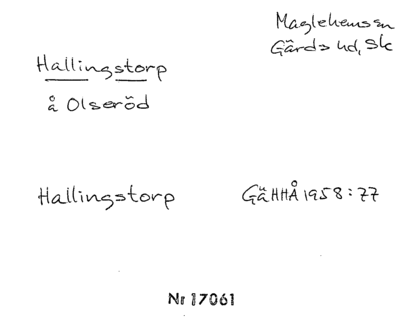 Maglehems sn
Gärds hd, Sk
Hallingstorp
å Olseröd
Hallingstorp GäHHÅ 1958:77
Nr 17061